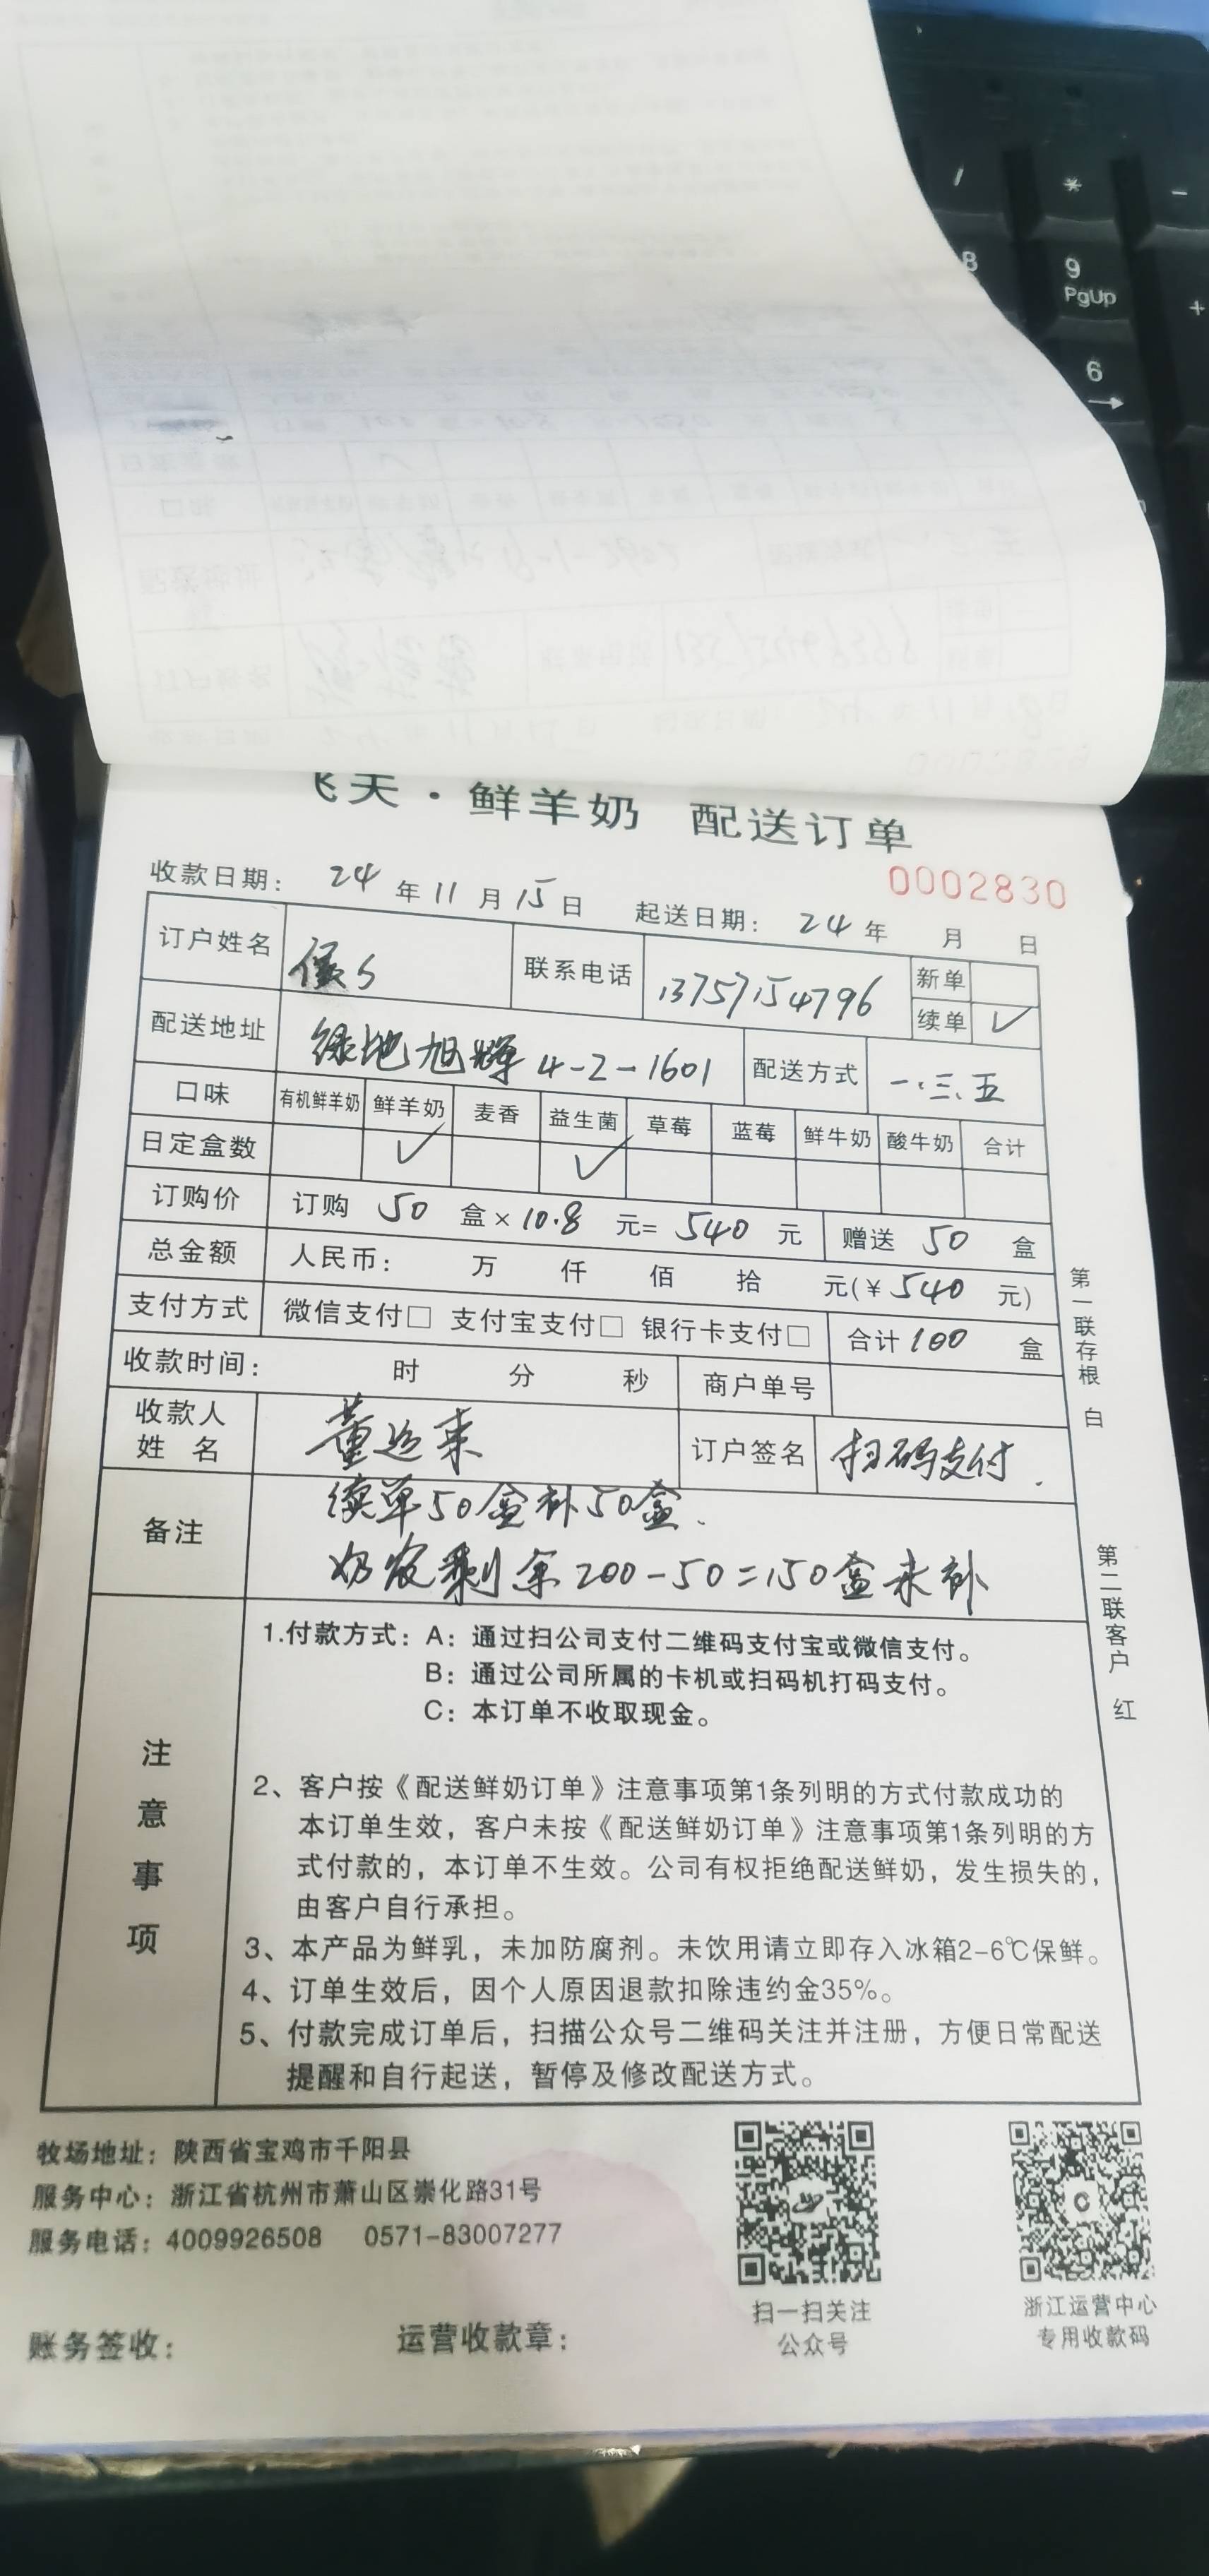 /
*
-
8
9
PgUp
+
6
→
飞天·鲜羊奶 配送订单
0002830
收款日期: 24 年 11 月 15 日 起送日期: 24 年 月 日
订户姓名 联系电话 13757154796 新单
续单 ✓
配送地址 绿地旭辉 4-2-1601 配送方式 一、三、五
口味 有机鲜羊奶 鲜羊奶 麦香 益生菌 草莓 蓝莓 鲜牛奶 酸牛奶 合计
日定盒数 ✓ ✓
订购价 订购 50 盒×10.8 元= 540 元 赠送 50 盒
总金额 人民币: 万 仟 佰 拾 元(¥ 540 元)
支付方式 微信支付□ 支付宝支付□ 银行卡支付□ 合计 100 盒
收款时间: 时 分 秒 商户单号
收款人姓名 董运来 订户签名 扫码支付.
备注 续单50盒补50盒.
奶农剩余200-50=150盒未补
注意事项
1.付款方式: A: 通过扫公司支付二维码支付宝或微信支付。
B: 通过公司所属的卡机或扫码机打码支付。
C: 本订单不收取现金。
2、客户按《配送鲜奶订单》注意事项第1条列明的方式付款成功的
本订单生效，客户未按《配送鲜奶订单》注意事项第1条列明的方
式付款的，本订单不生效。公司有权拒绝配送鲜奶，发生损失的，
由客户自行承担。
3、本产品为鲜乳，未加防腐剂。未饮用请立即存入冰箱2-6℃保鲜。
4、订单生效后，因个人原因退款扣除违约金35%。
5、付款完成订单后，扫描公众号二维码关注并注册，方便日常配送
提醒和自行起送，暂停及修改配送方式。
第一联存根 白
第二联客户 红
牧场地址: 陕西省宝鸡市千阳县
服务中心: 浙江省杭州市萧山区崇化路31号
服务电话: 4009926508 0571-83007277
扫一扫关注
公众号
浙江运营中心
专用收款码
账务签收:
运营收款章: